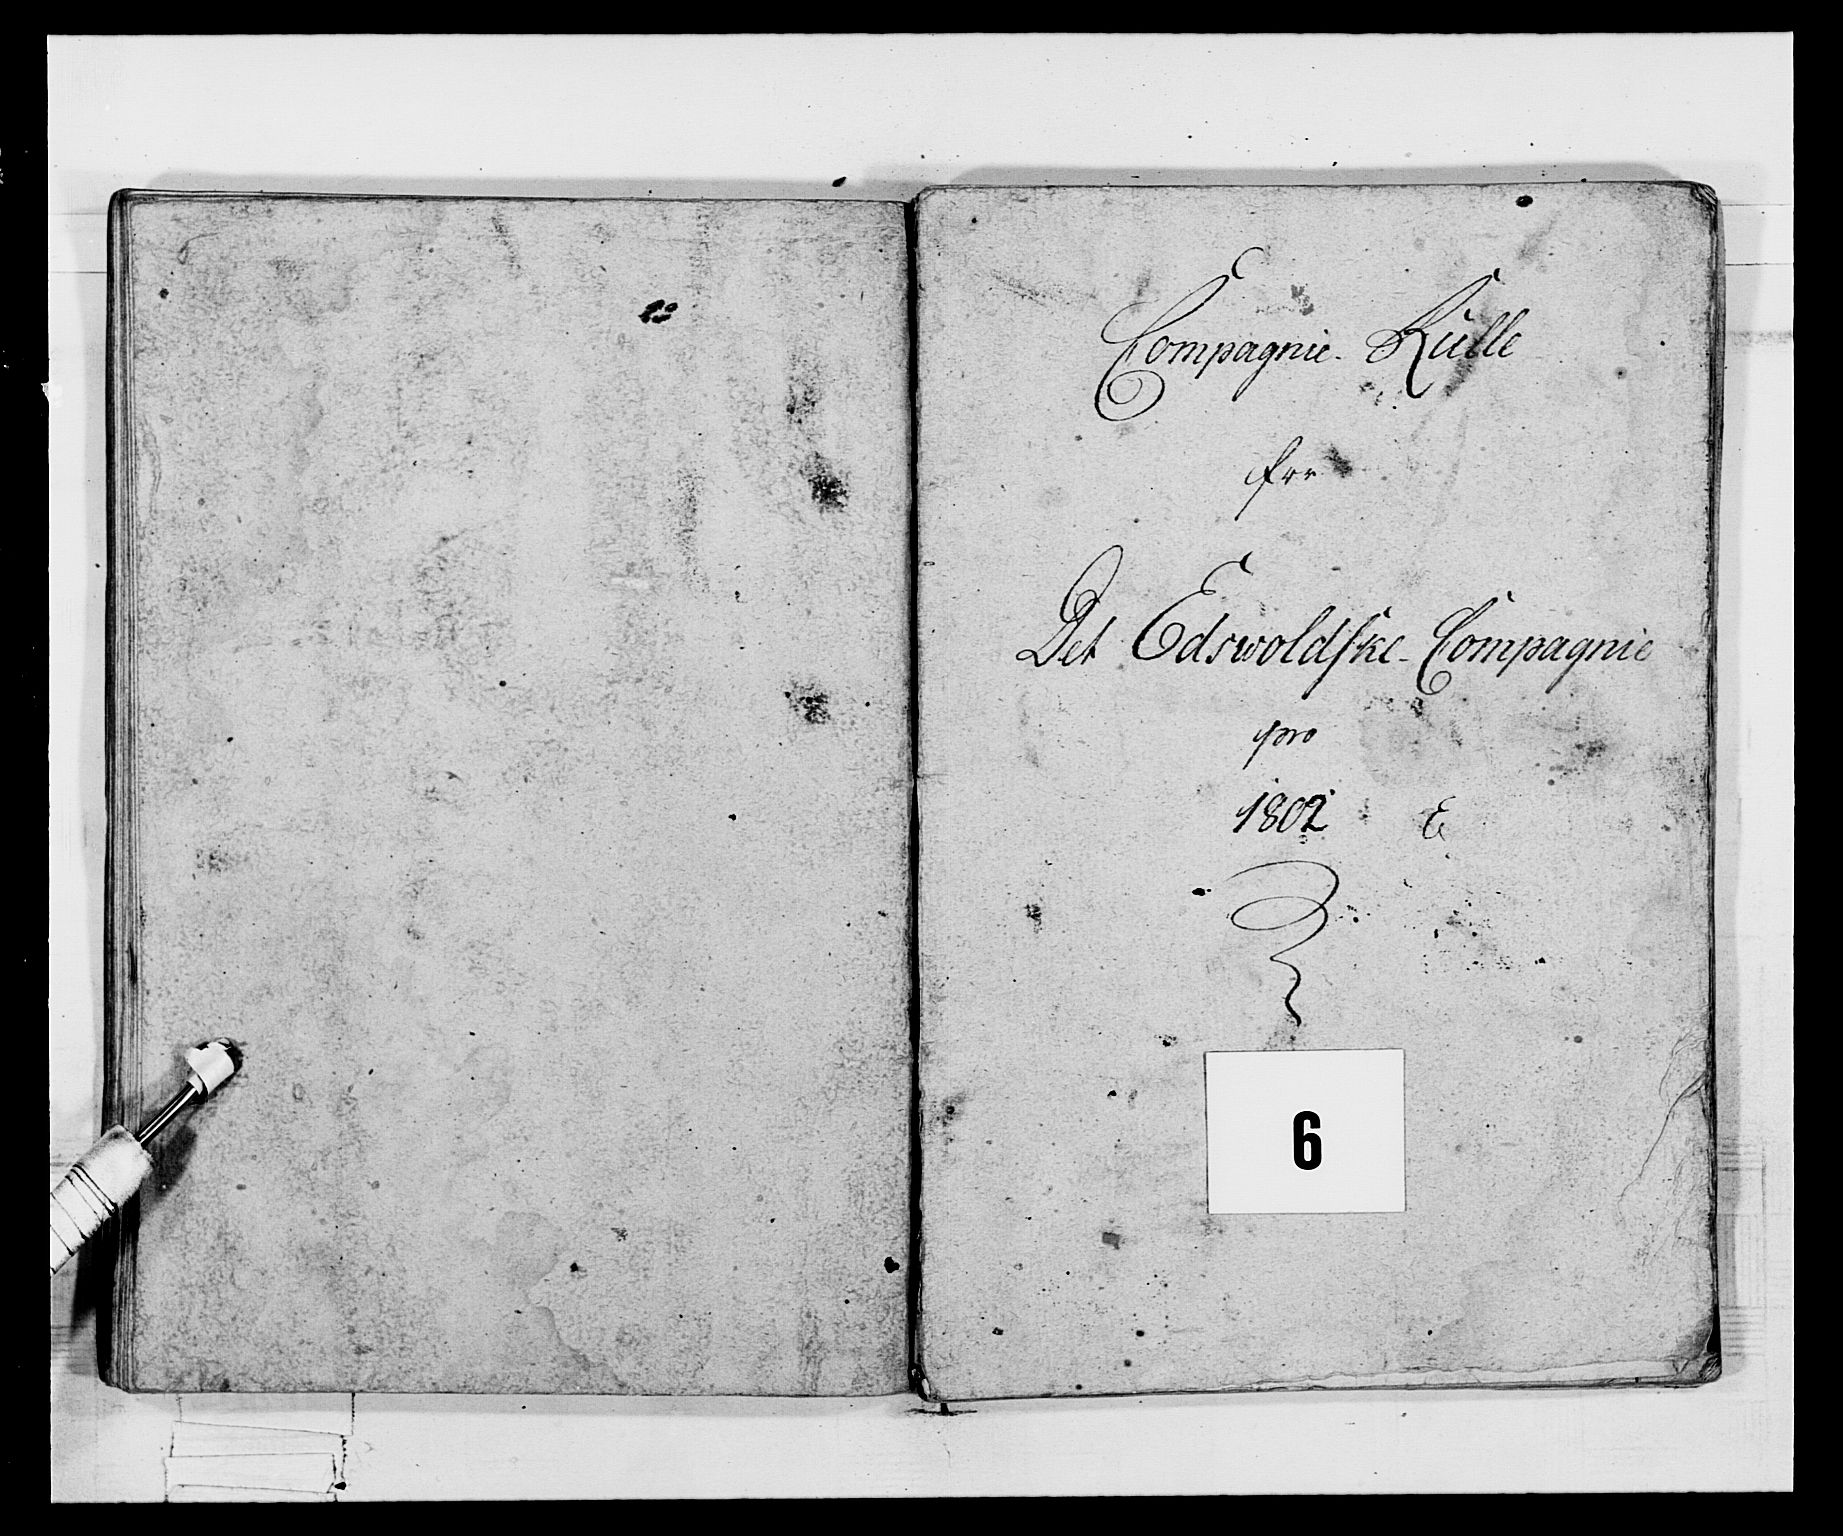 Compagnie Rulle
for
Det Edswoldske Compagnie
pro
1802 E
6